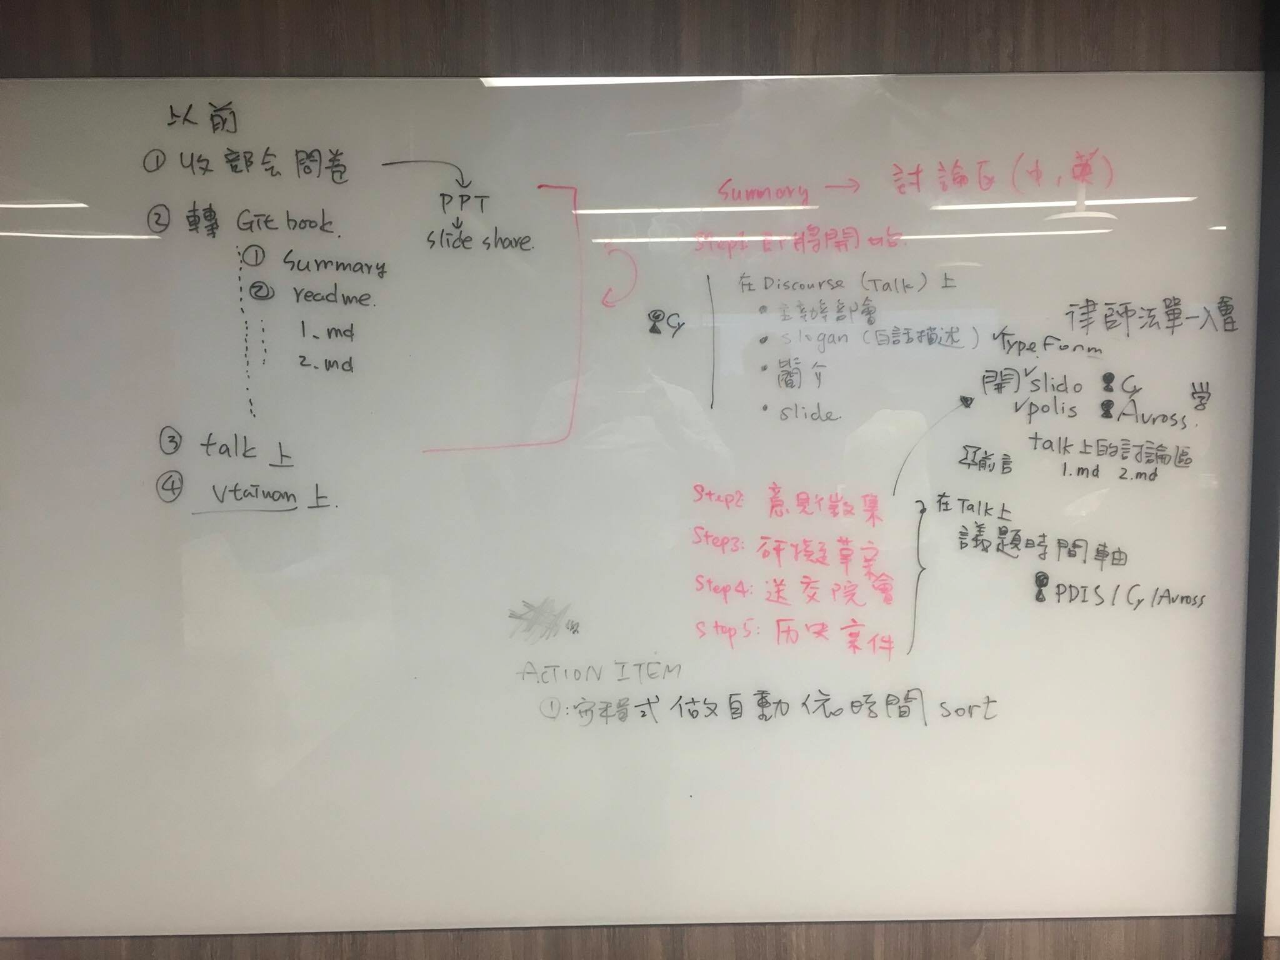 以前
① 收部会問卷
PPT
slide share.
② 轉 Gitbook.
① Summary
② readme.
1.md
2.md
③ talk 上
④ vtaiwan 上.
Summary → 討論区 (中,英)
Step1: 即將開始
在 Discourse (Talk) 上
• 主持部會
• slogan (白話描述)
• 簡介
• slide
Cy
律師法單一入會
✓TypeForm
開 ✓slido Cy
✓polis Avross
talk 上的討論區
前言 1.md 2.md
Step2: 意見徵集
Step3: 研擬草案
Step4: 送交院會
Step5: 历史案件
在 Talk 上
議題時間軸
PDIS / Cy / Avross
ACTION ITEM
①: 寫程式 做自動依時間 sort